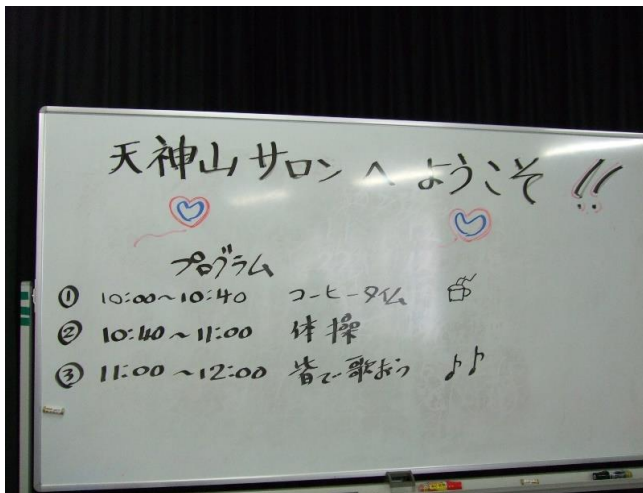 天神山サロンへようこそ!!
プログラム
① 10:00~10:40 コーヒータイム
② 10:40~11:00 体操
③ 11:00~12:00 皆で歌おう ♪♪